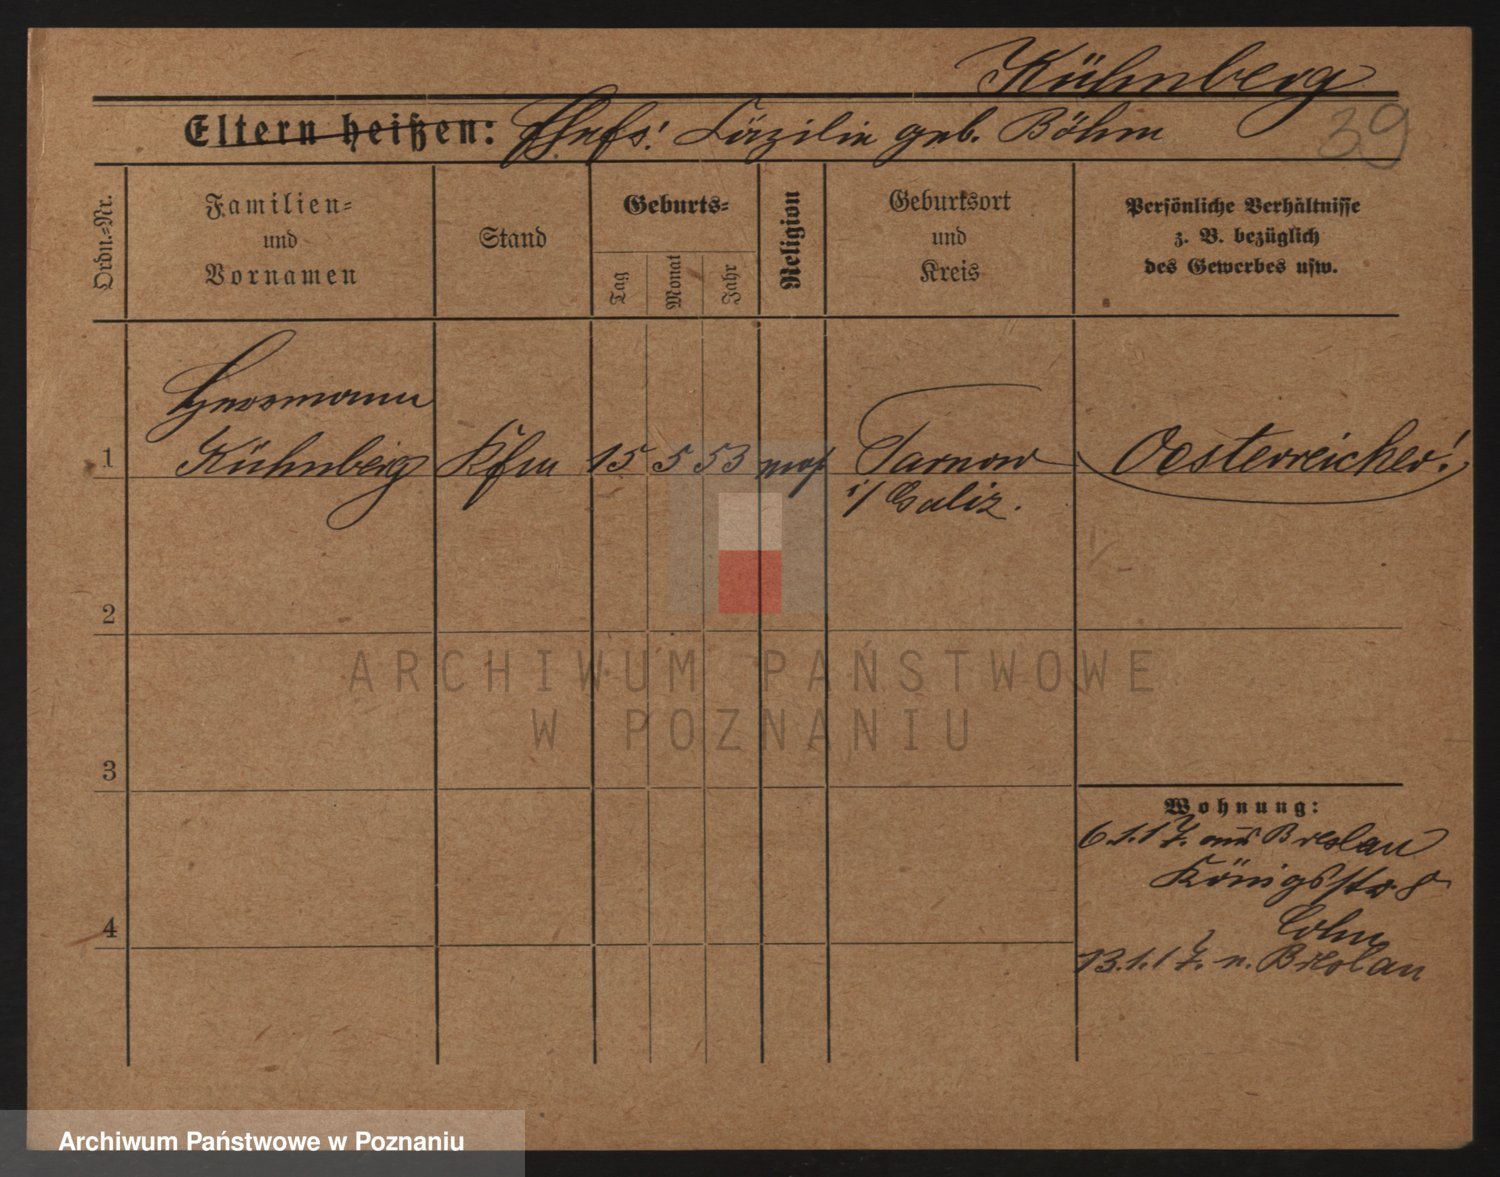 Kühnberg
39
Eltern heißen: Ehefr: Cäzilie geb. Böhm
Ordn.-Nr.
Familien-
und
Vornamen
Stand
Geburts-
Tag
Monat
Jahr
Religion
Geburtsort
und
Kreis
Persönliche Verhältnisse
z. B. bezüglich
des Gewerbes usw.
1
Hermann
Kühnberg
Kfm
15 5 53
mos
Tarnow
i/ Galiz.
Oesterreicher!
2
3
4
Wohnung:
6.1.17. aus Breslau
Königsstr 8
Cohn
13.1.17. n. Breslau
ARCHIWUM PAŃSTWOWE
W POZNANIU
Archiwum Państwowe w Poznaniu